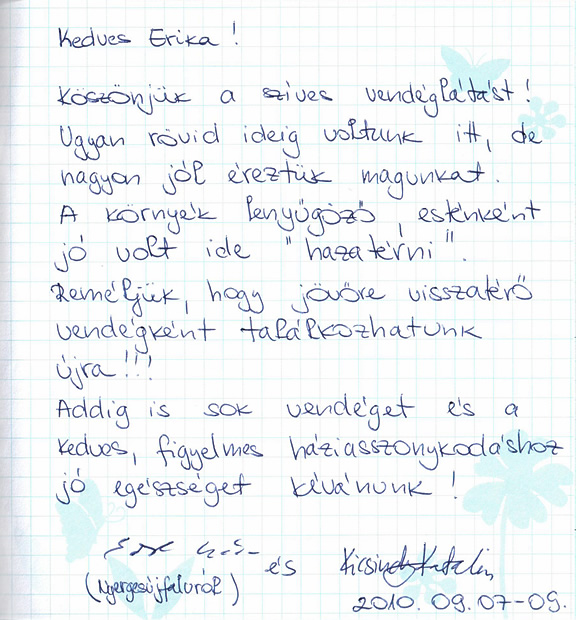 Kedves Erika!
Köszönjük a szíves vendéglátást!
Ugyan rövid ideig voltunk itt, de
nagyon jól éreztük magunkat.
A környék lenyűgöző, esténként
jó volt ide "hazatérni".
Reméljük, hogy jövőre visszatérő
vendégként találkozhatunk
újra!!!
Addig is sok vendéget és a
kedves, figyelmes háziasszonykodáshoz
jó egészséget kívánunk!
és Katalin
(Nyergesújfaluról)
2010. 09. 07-09.